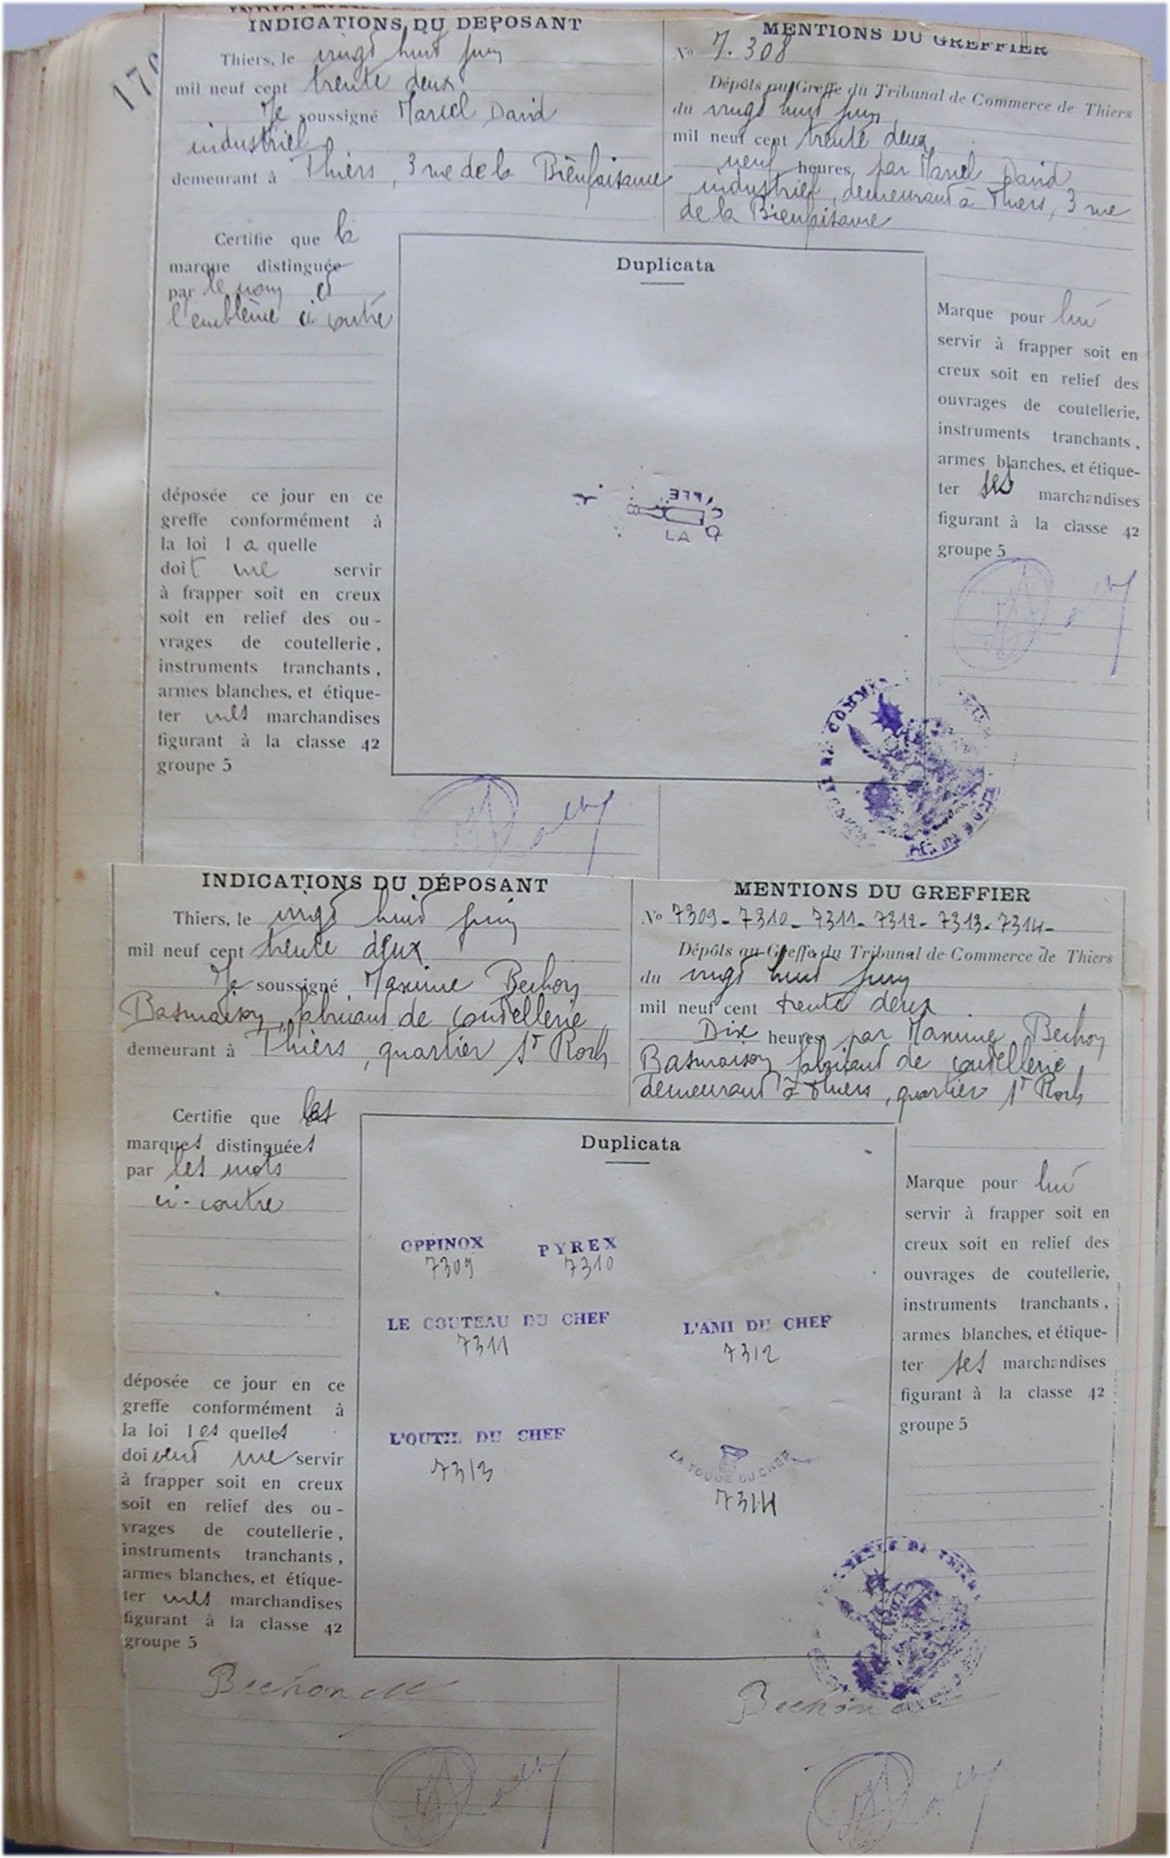 170
INDICATIONS DU DÉPOSANT
Thiers, le vingt huit juin
mil neuf cent trente deux
Je soussigné Marcel David
industriel
demeurant à Thiers, 3 rue de la Bienfaisance
MENTIONS DU GREFFIER
No 7.308
Dépôts au Greffe du Tribunal de Commerce de Thiers
du vingt huit juin
mil neuf cent trente deux
neuf heures, par Marcel David
industriel, demeurant à Thiers, 3 rue
de la Bienfaisance
Certifie que la
marque distinguée
par le nom et
l'emblème ci contre
déposée ce jour en ce
greffe conformément à
la loi la quelle
doit me servir
à frapper soit en creux
soit en relief des ou-
vrages de coutellerie,
instruments tranchants,
armes blanches, et étique-
ter mes marchandises
figurant à la classe 42
groupe 5
Duplicata
LA
Marque pour lui
servir à frapper soit en
creux soit en relief des
ouvrages de coutellerie,
instruments tranchants,
armes blanches, et étique-
ter ses marchandises
figurant à la classe 42
groupe 5
INDICATIONS DU DÉPOSANT
Thiers, le vingt huit juin
mil neuf cent trente deux
Je soussigné Maxime Bechon
Basmaison, fabricant de coutellerie
demeurant à Thiers, quartier St Roch
MENTIONS DU GREFFIER
No 7309-7310-7311-7312-7313-7314-
Dépôts au Greffe du Tribunal de Commerce de Thiers
du vingt huit juin
mil neuf cent trente deux
Dix heures, par Maxime Bechon
Basmaison fabricant de coutellerie
demeurant à Thiers, quartier St Roch
Certifie que les
marques distinguées
par les mots
ci-contre
déposée ce jour en ce
greffe conformément à
la loi les quelles
doivent me servir
à frapper soit en creux
soit en relief des ou-
vrages de coutellerie,
instruments tranchants,
armes blanches, et étique-
ter mes marchandises
figurant à la classe 42
groupe 5
Duplicata
OPPINOX PYREX
7309 7310
LE COUTEAU DU CHEF L'AMI DU CHEF
7311 7312
L'OUTIL DU CHEF
7313
LA TOQUE DU CHEF
7314
Marque pour lui
servir à frapper soit en
creux soit en relief des
ouvrages de coutellerie,
instruments tranchants,
armes blanches, et étique-
ter ses marchandises
figurant à la classe 42
groupe 5
Bechon
Bechon